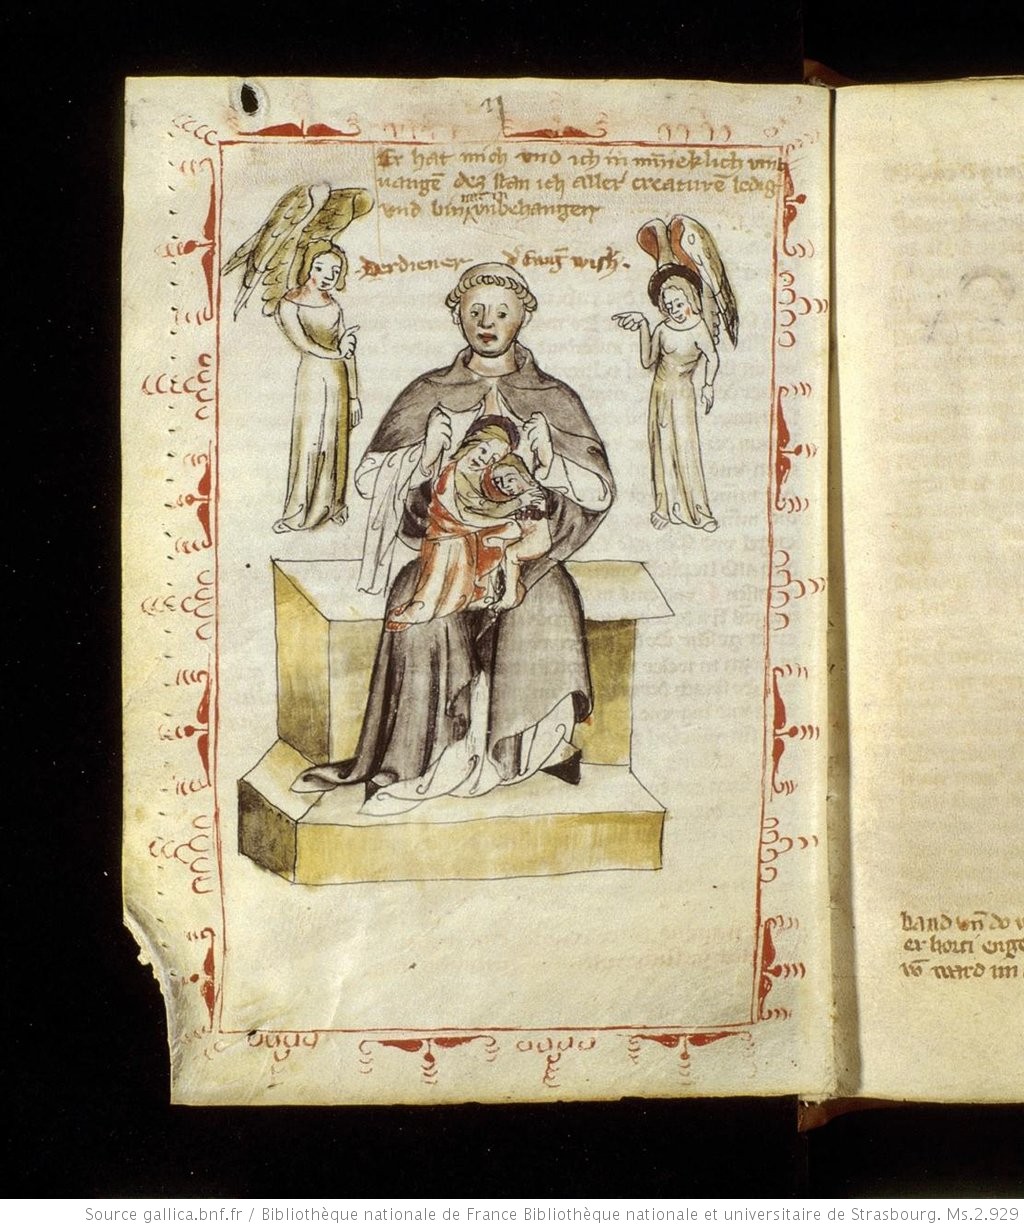 Er hat mich vnd ich in miñeklich vmb
uangē dez stan ich aller creaturē ledig
vnd bin mit in vnbehangen
der diener d' Ewigē wish.
band vñ do
er horti
vō ward im
Source gallica.bnf.fr / Bibliothèque nationale de France Bibliothèque nationale et universitaire de Strasbourg. Ms.2.929